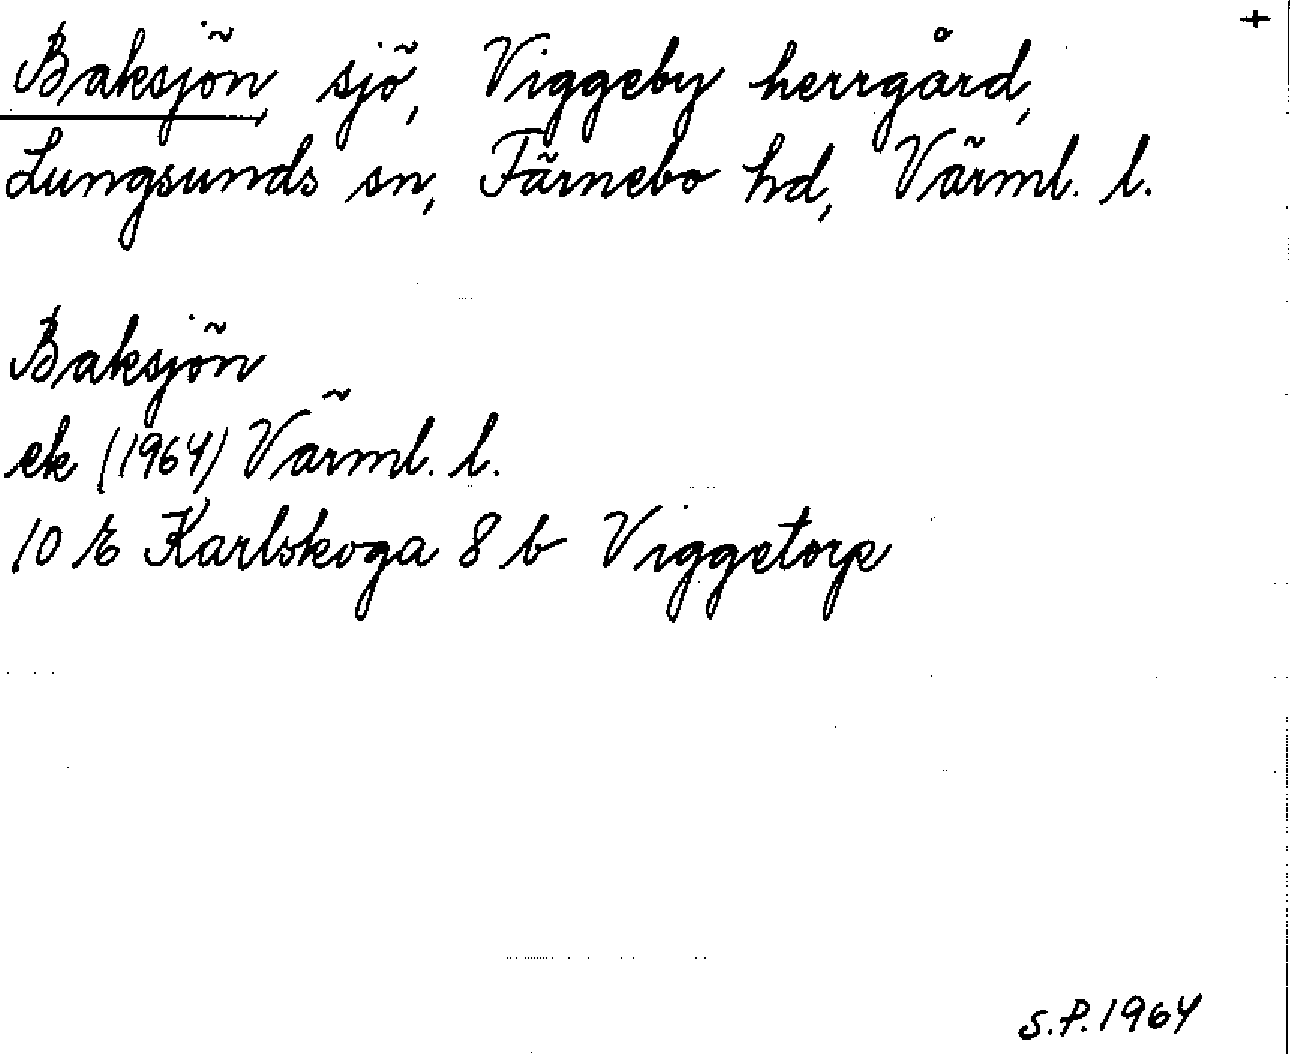 +
Baksjön, sjö, Viggeby herrgård,
Lungsunds sn, Färnebo hd, Värml. l.
Baksjön
ek (1964) Värml. l.
10 E Karlskoga 8 b Viggetorp
S.P. 1964